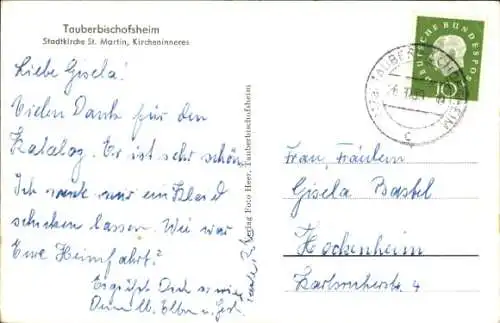 Tauberbischofsheim
Stadtkirche St. Martin, Kircheninneres
DEUTSCHE BUNDESPOST
10
Liebe Gisela!
Vielen Dank für den
Katalog. Er ist sehr schön.
Ich werde mir ein Kleid
schicken lassen. Wie war
Eure Heimfahrt?
Es grüßt Dich sowie
Deine lb. Eltern u.
Verlag Foto Heer, Tauberbischofsheim
Frau, Fräulein
Gisela Bastel
Hockenheim
Karlsruherstr. 4